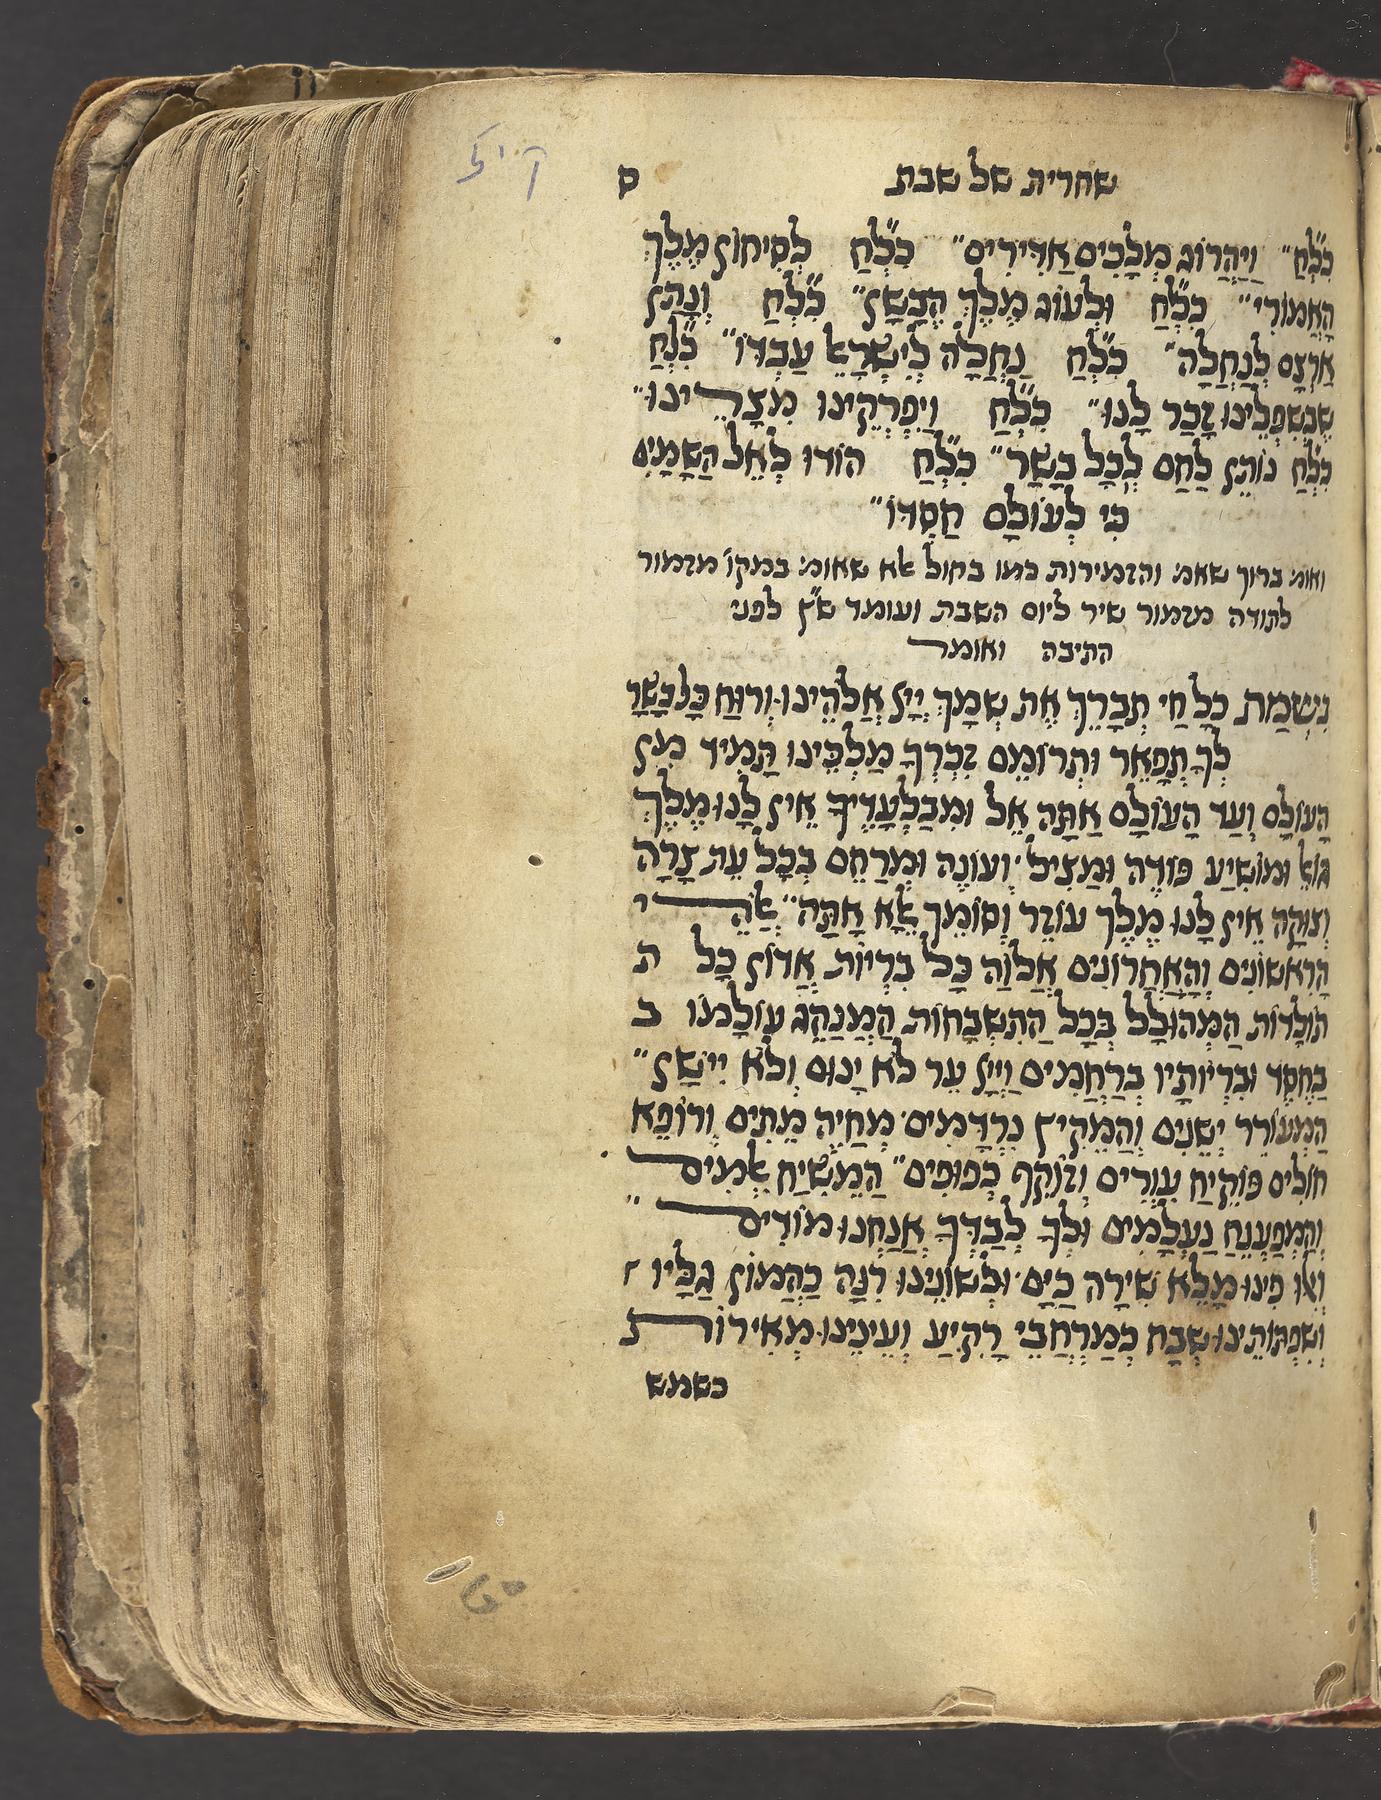 קיל
שחרית של שבת ס
כ״לְח״ וַיַהֲרוֹג מְלָכִים אַדִירִים״ כִ״לְח לְסִיחוֹן מֶלֶךְ
הָאֱמוֹרִי״ כ״לְח וּלְעוֹג מֶלֶךְ הַבָשָן״ כִ״לְח וְנָתַן
אַרְצָם לְנַחֲלָה״ כִ״לְח נַחֲלָה לְיִשְרָאֵל עַבְדוֹ״ כִ״לְח
שֶבְשִפְלֵינוּ זָכַר לָנוּ״ כִ״לְח וַיִפְרְקֵינוּ מִצָרֵינוּ״
כִ״לְח נוֹתֵן לֶחֶם לְכָל בָשָר״ כִ״לְח הוֹדוּ לְאֵל הַשָמַיִם
כִי לְעוֹלָם חַסְדוֹ״
ואומ׳ ברוך שאמ׳ והזמירות כמו בחול אלא שאומ׳ במקו׳ מזמור
לתודה מזמור שיר ליום השבת ועומד ש״ץ לפני
התיבה ואומר
נִשְמַת כָל חַי תְבָרֵךְ אֶת שְמָךְ יְיָ אֱלֹהֵינוּ וְרוּחַ כָל בָשָר
לְךָ תְפָאֵר וּתְרוֹמֵם זִכְרְךָ מַלְכֵינוּ תָמִיד מִן
הָעוֹלָם וְעַד הָעוֹלָם אַתָה אֵל וּמִבַלְעָדֶיךָ אֵין לָנוּ מֶלֶךְ
גוֹאֵל וּמוֹשִיעַ פוֹדֶה וּמַצִיל׳ וְעוֹנֶה וּמְרַחֵם בְכָל עֵת צָרָה
וְצוּקָה אֵין לָנוּ מֶלֶךְ עוֹזֵר וְסוֹמֵךְ אֶלָא אָתָה״ אֱלֹהֵי
הָרִאשוֹנִים וְהָאַחֲרוֹנִים אֱלוֹהַ כָל בְרִיוֹת אֲדוֹן כָל ת
תוֹלָדוֹת הַמְהוּלָל בְכָל הַתִשְבָחוֹת הַמְנַהֵג עוֹלָמוֹ ב
בְחֶסֶד וּבְרִיוֹתָיו בְרַחֲמִים וַיְיָ עֵר לֹא יָנוּם וְלֹא יִישָן״
הַמְעוֹרֵר יְשֵנִים וְהַמֵקִיץ נִרְדָמִים׳ מְחַיֵה מֵתִים וְרוֹפֵא
חוֹלִים פוֹקֵיחַ עִוְרִים וְזוֹקֵף כְפוּפִים״ הַמֵשִיחַ אִלְמִים
וְהַמְפַעְנֵחַ נַעְלָמִים וּלְךָ לְבַדְךָ אֲנַחְנוּ מוֹדִים״
וְאִלוּ פִינוּ מָלֵא שִירָה כַיָם׳ וּלְשוֹנֵינוּ רִנָה כַהֲמוֹן גַלָיו
וְשִפְתוֹתֵינוּ שֶבַח כְמֶרְחֲבֵי רָקִיעַ וְעֵינֵינוּ מְאִירוֹת
כשמש